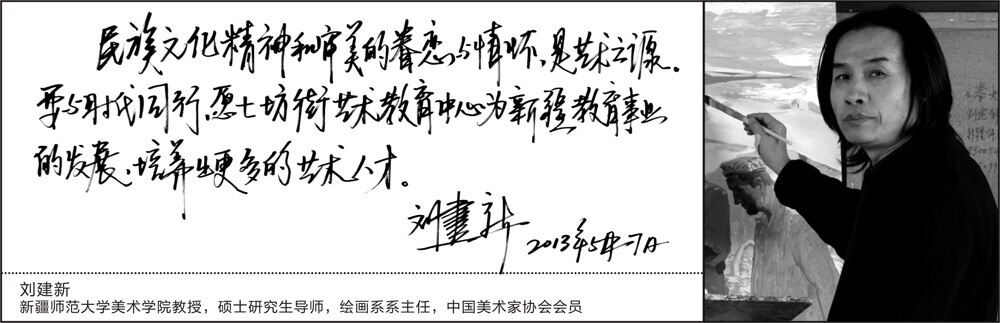 民族文化精神和审美的眷恋与情怀、是艺术之源。
要与时代同行、愿七坊街艺术教育中心为新疆教育事业
的发展、培养出更多的艺术人才。
刘建新 2013年5月7日
刘建新
新疆师范大学美术学院教授，硕士研究生导师，绘画系系主任，中国美术家协会会员